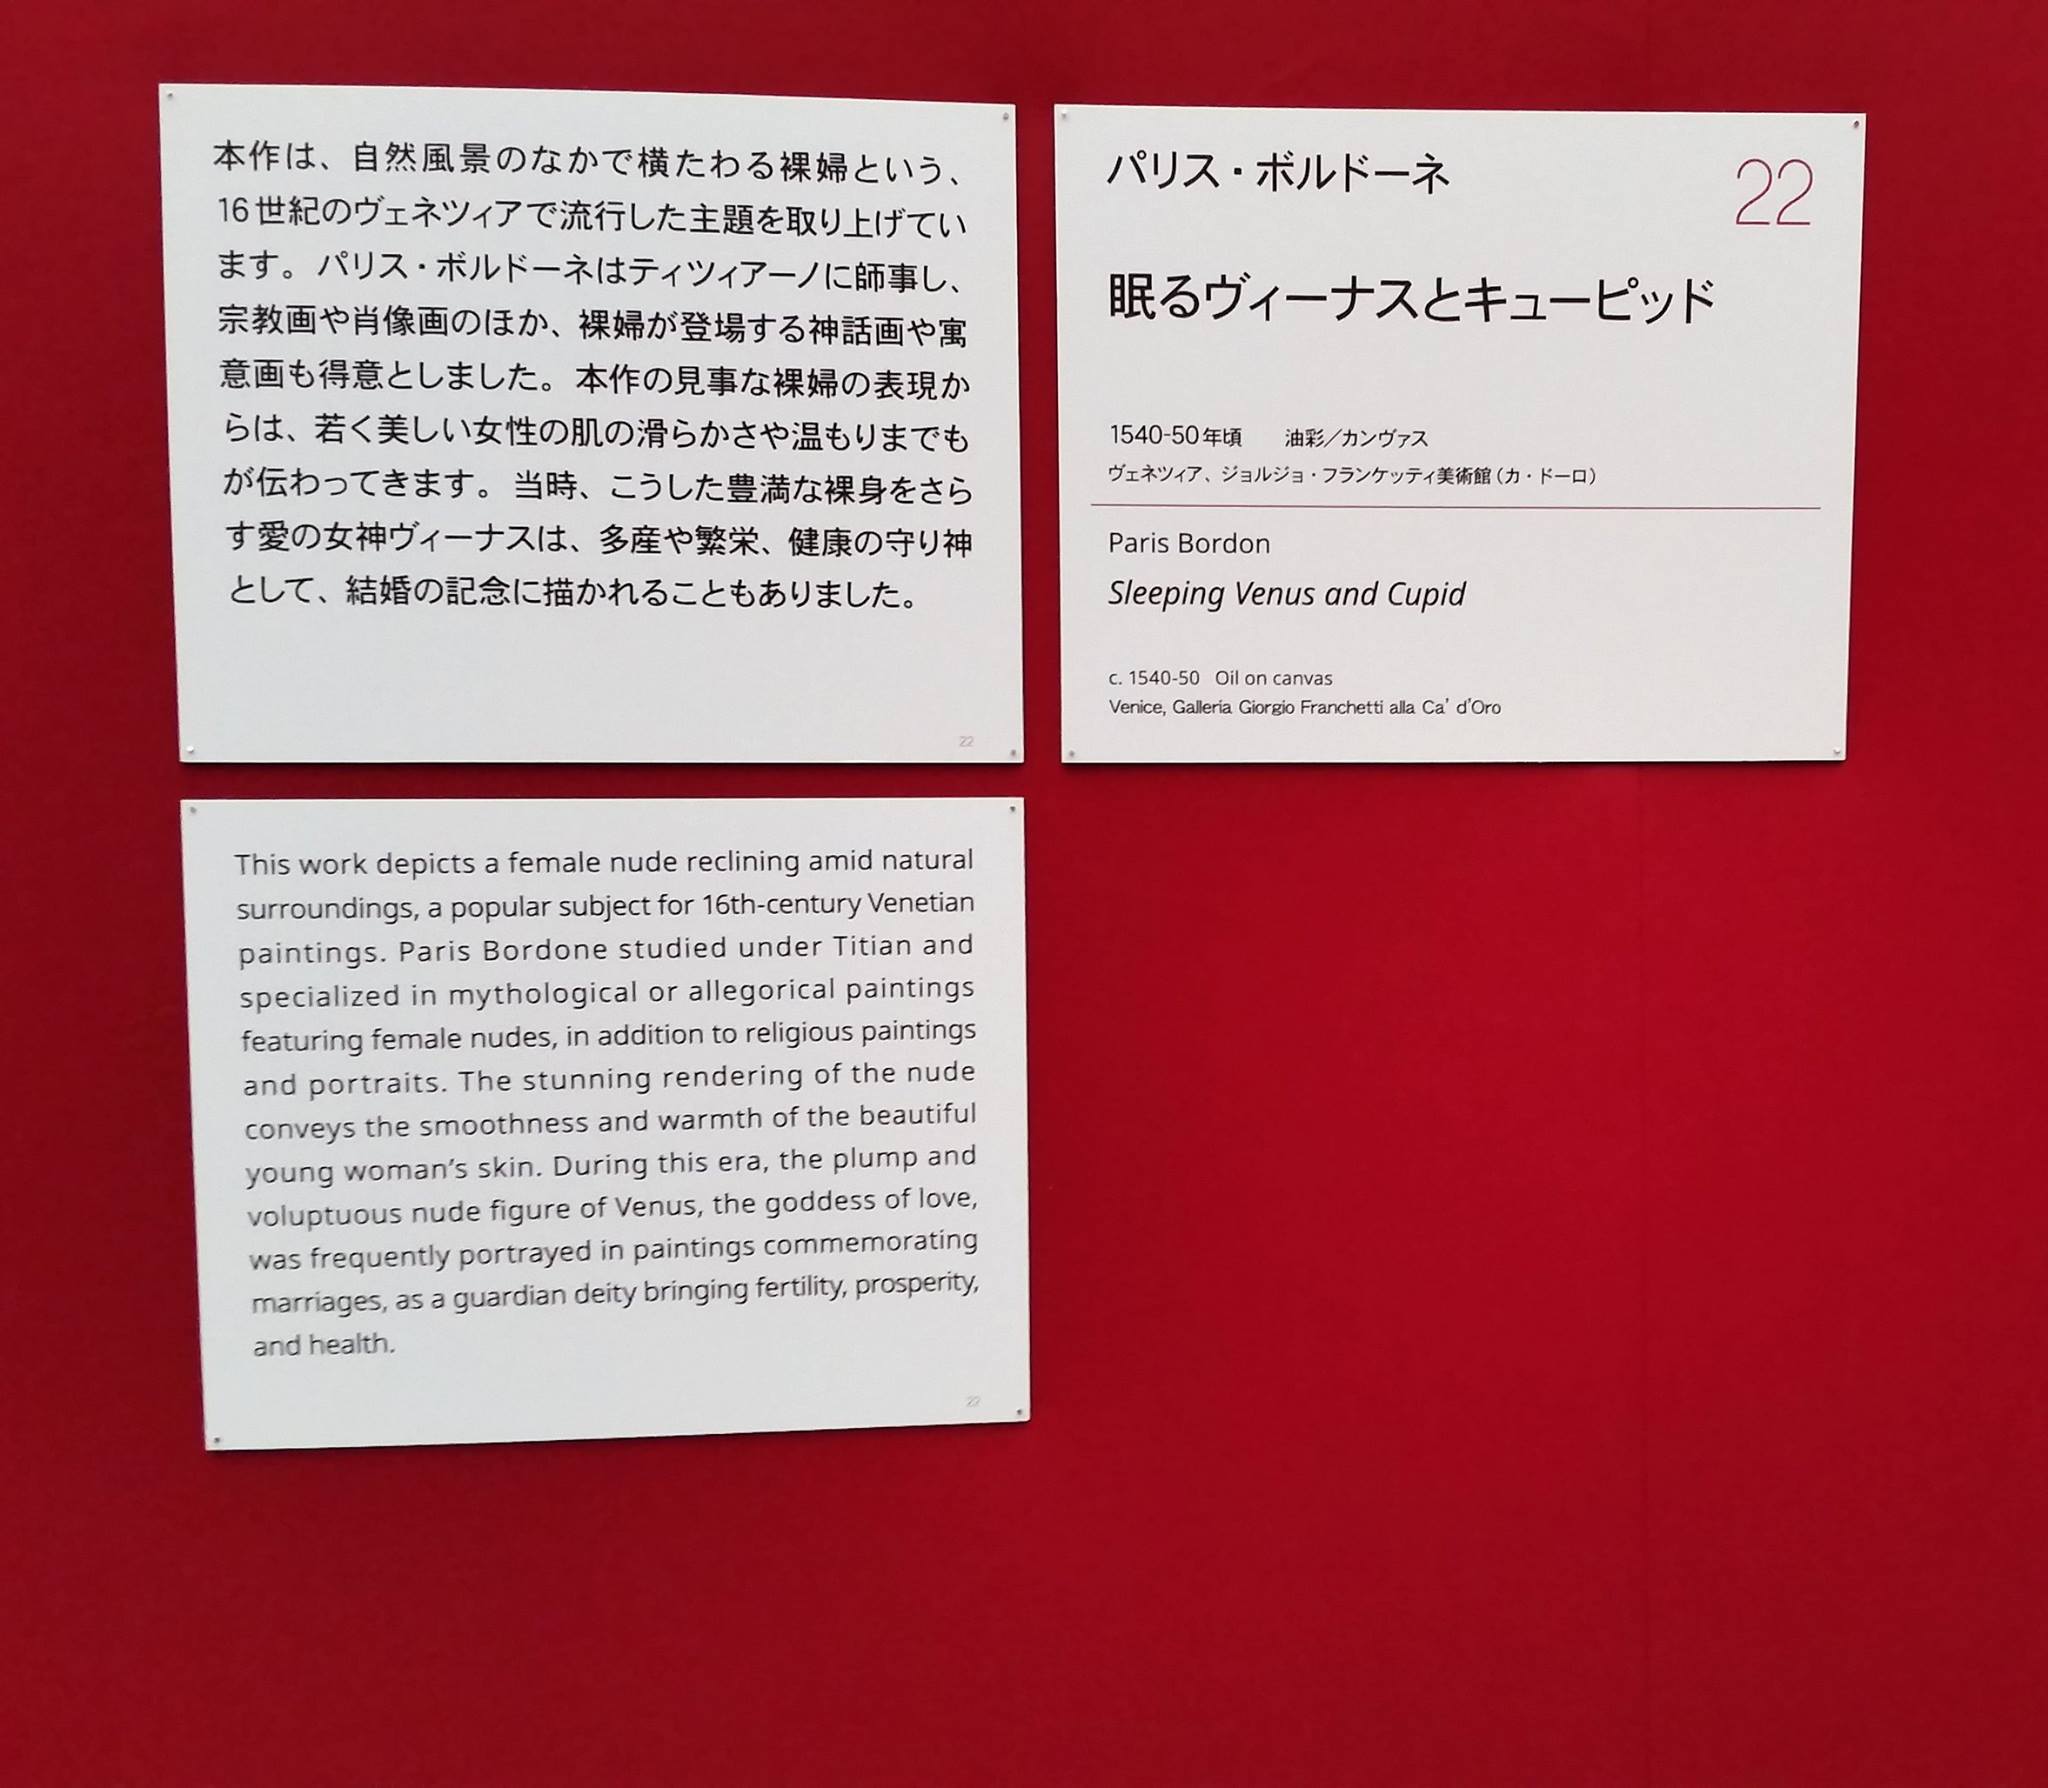 本作は、自然風景のなかで横たわる裸婦という、
16世紀のヴェネツィアで流行した主題を取り上げてい
ます。パリス・ボルドーネはティツィアーノに師事し、
宗教画や肖像画のほか、裸婦が登場する神話画や寓
意画も得意としました。本作の見事な裸婦の表現か
らは、若く美しい女性の肌の滑らかさや温もりまでも
が伝わってきます。当時、こうした豊満な裸身をさら
す愛の女神ヴィーナスは、多産や繁栄、健康の守り神
として、結婚の記念に描かれることもありました。
22
パリス・ボルドーネ
22
眠るヴィーナスとキューピッド
1540-50年頃 油彩／カンヴァス
ヴェネツィア、ジョルジョ・フランケッティ美術館（カ・ドーロ）
Paris Bordon
Sleeping Venus and Cupid
c. 1540-50 Oil on canvas
Venice, Galleria Giorgio Franchetti alla Ca' d'Oro
This work depicts a female nude reclining amid natural
surroundings, a popular subject for 16th-century Venetian
paintings. Paris Bordone studied under Titian and
specialized in mythological or allegorical paintings
featuring female nudes, in addition to religious paintings
and portraits. The stunning rendering of the nude
conveys the smoothness and warmth of the beautiful
young woman's skin. During this era, the plump and
voluptuous nude figure of Venus, the goddess of love,
was frequently portrayed in paintings commemorating
marriages, as a guardian deity bringing fertility, prosperity,
and health.
22